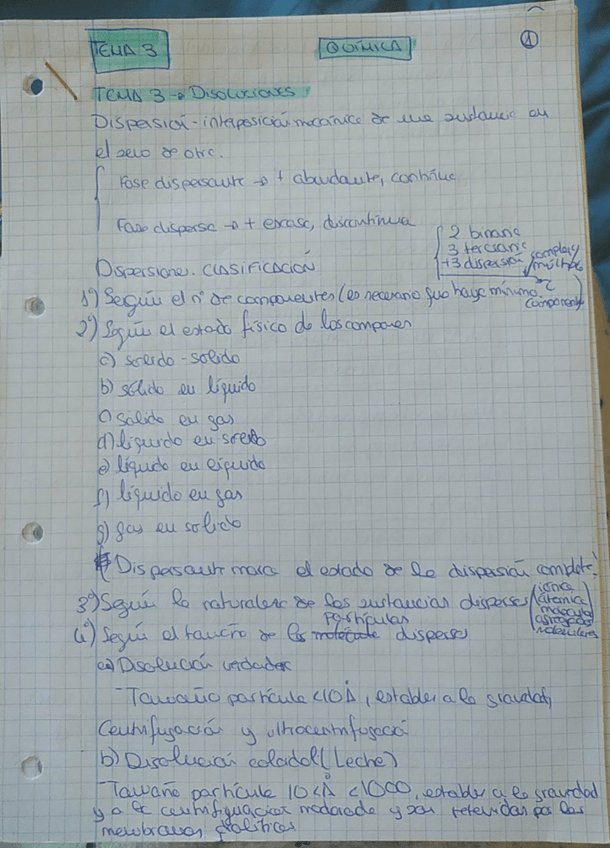 TEMA 3
QUÍMICA
1
TEMA 3 → Disoluciones
Dispersión - interposición mecánica de una sustancia en
el seno de otra.
Fase dispersante → + abundante, continua
Fase dispersa → + escasa, discontinua
2 binaria
3 terciaria
+3 dispersión compleja
múltiple
Dispersiones. CLASIFICACIÓN
1º) Según el nº de componentes (es necesario que haya mínimo 2
componentes)
2º) Según el estado físico de los componen
a) sólido-sólido
b) sólido en líquido
c) sólido en gas
d) líquido en sólido
e) líquido en líquido
f) líquido en gas
g) gas en sólido
Dispersante marca el estado de la dispersión completa!
3º) Según la naturaleza de las sustancias dispersas
iónica
atómica
molecular
agregados
moleculares
4º) Según el tamaño de las partículas dispersas
a) Disolución verdadera
- Tamaño partícula <10 Å, estables a la gravedad,
Centrifugación y ultracentrifugación
b) Disolución coloidal (Leche)
- Tamaño partícula 10 < Å < 1000, estables a la gravedad
y a la centrifugación moderada y son retenidas por las
membranas